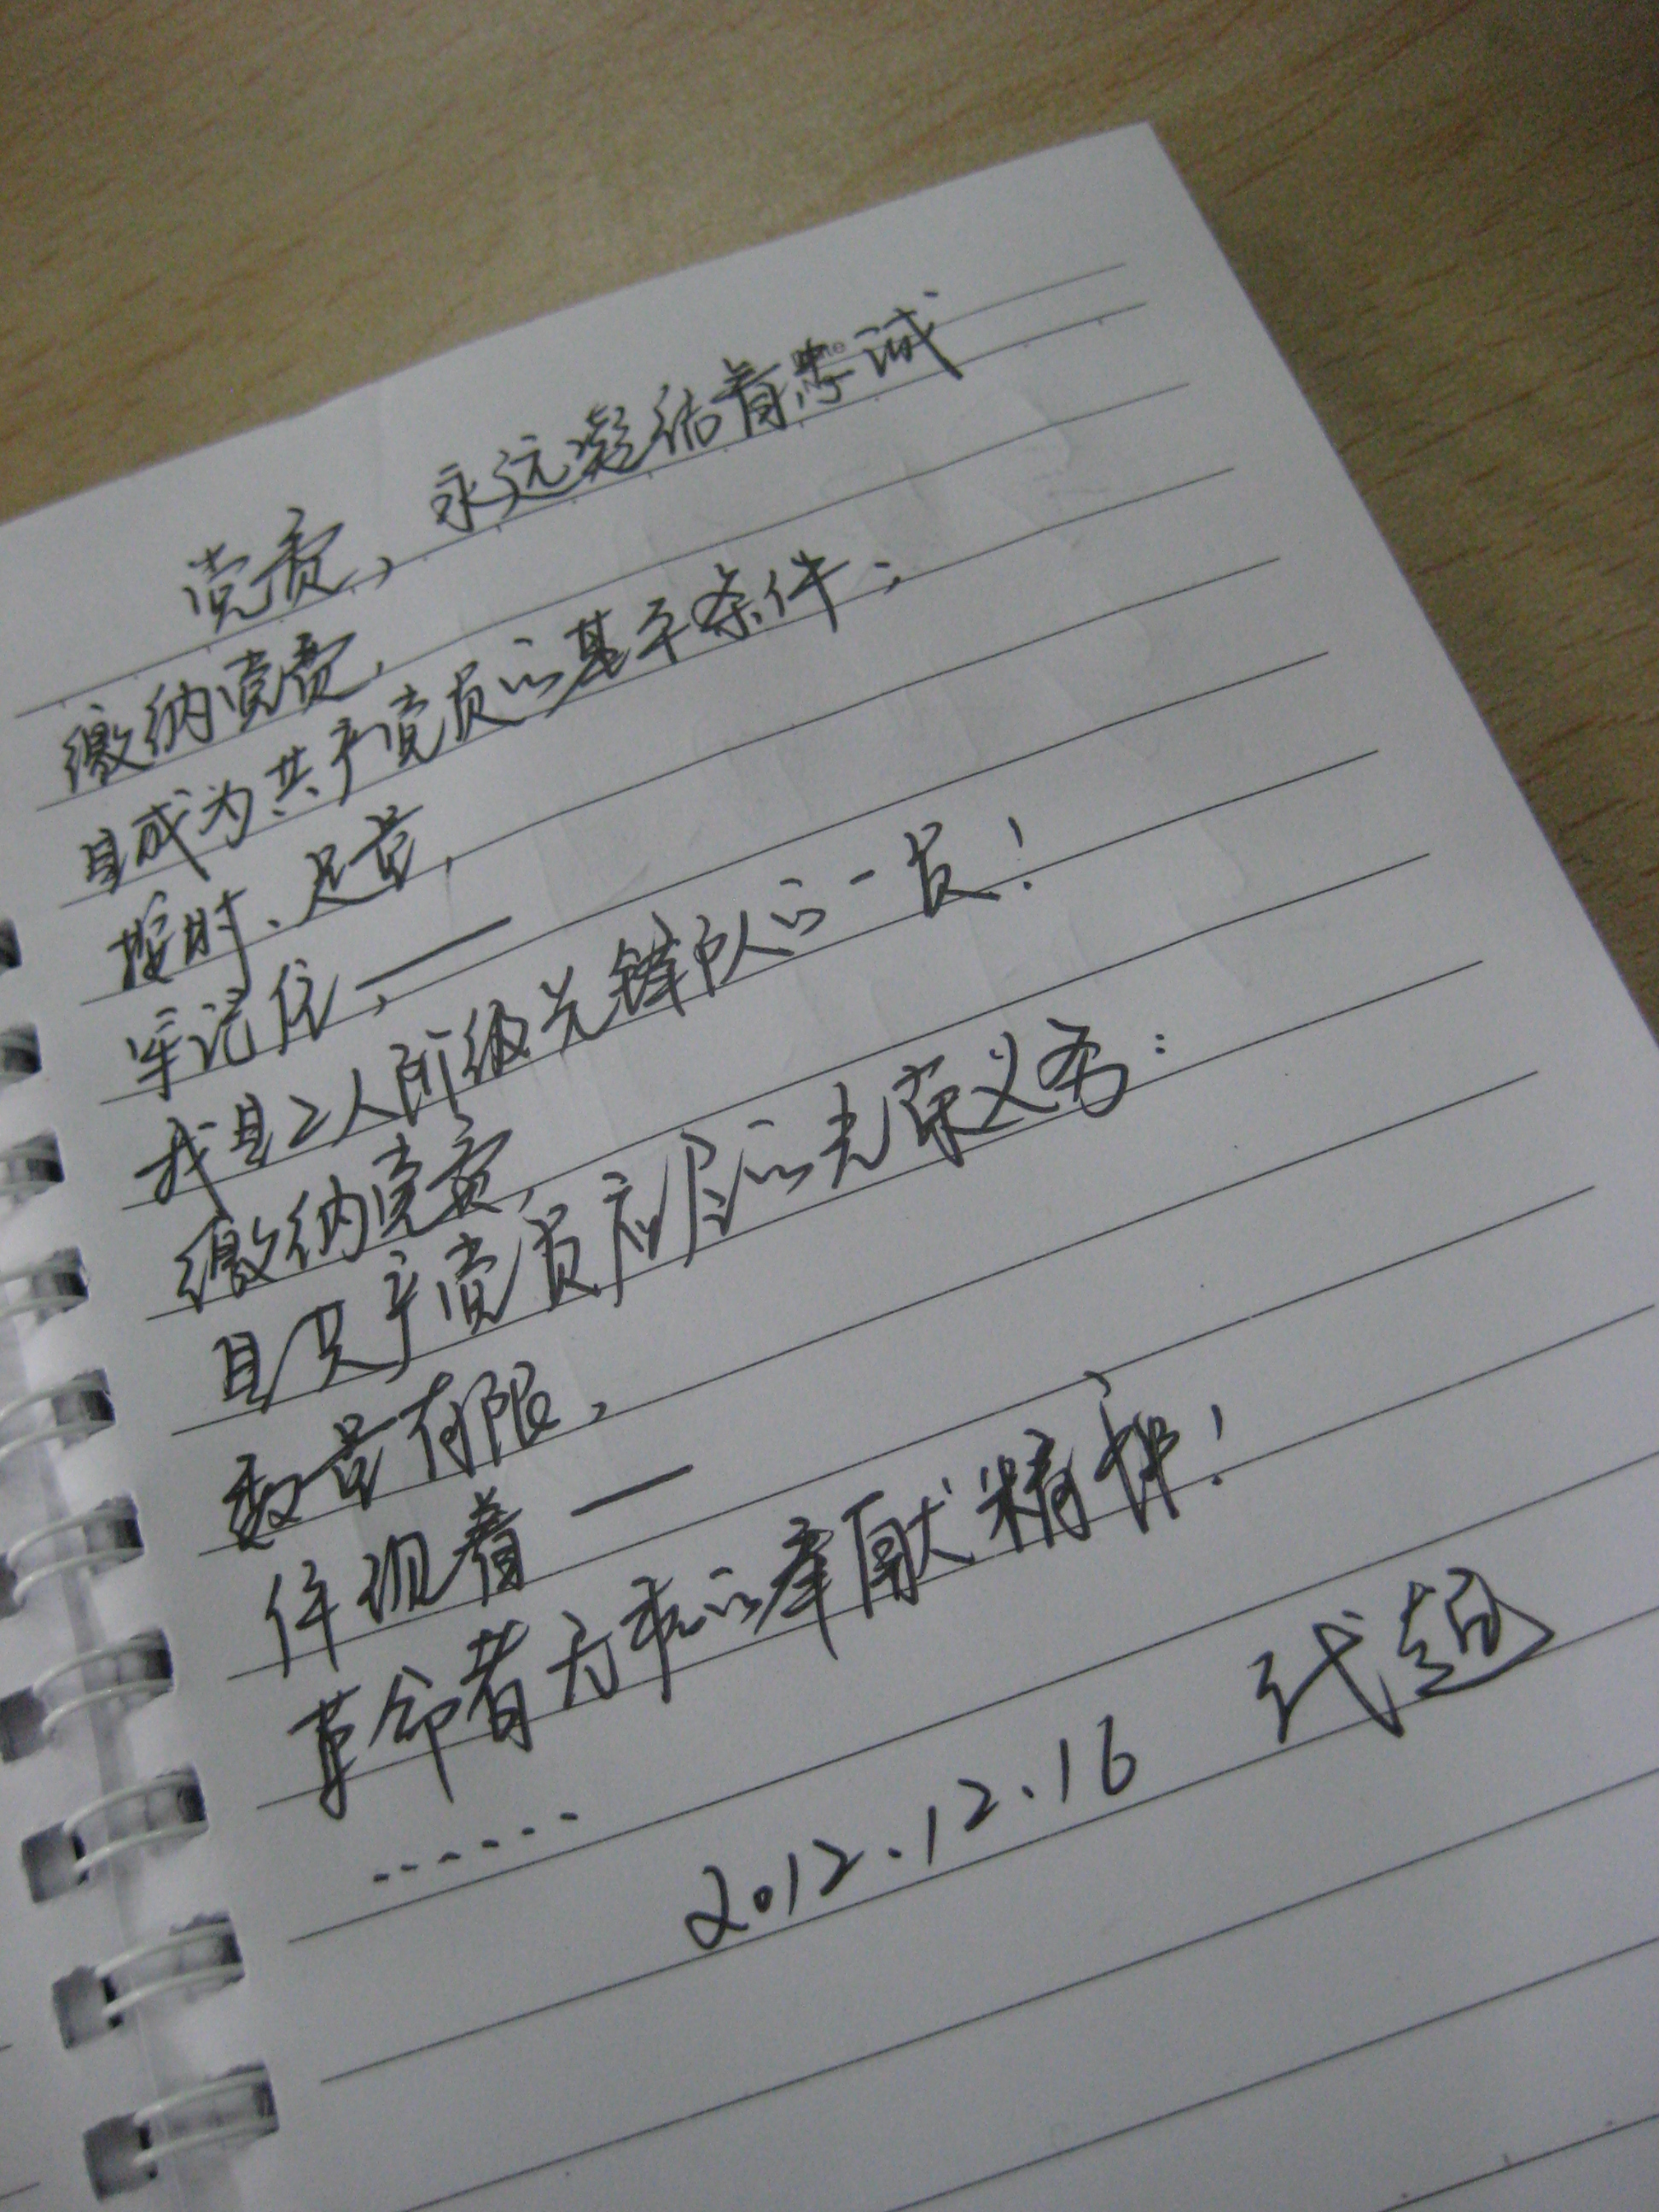 党费，永远凝结着忠诚
缴纳党费，
是成为共产党员的基本条件；
按时、足量，
牢记住，——
我是工人阶级先锋队的一员！
缴纳党费，
是共产党员应尽的光荣义务：
数量有限，
体现着——
革命者无求的奉献精神！
......
2012.12.16 代超